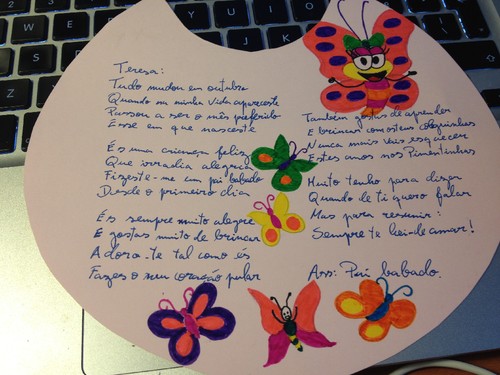 Teresa:
Tudo mudou em outubro
Quando na minha vida apareceste
Passou a ser o mês preferido
Esse em que nasceste
És uma criança feliz
Que irradia alegria
Fizeste-me um pai babado
Desde o primeiro dia
És sempre muito alegre
E gostas muito de brincar
Adoro-te tal como és
Fazes o meu coração pular
Também gostas de aprender
E brincar com os teus coleguinhas
Nunca mais vais esquecer
Estes anos nos Pimentinhas
Muito tenho para dizer
Quando de ti quero falar
Mas para resumir:
Sempre te hei-de amar!
Ass: Pai babado.